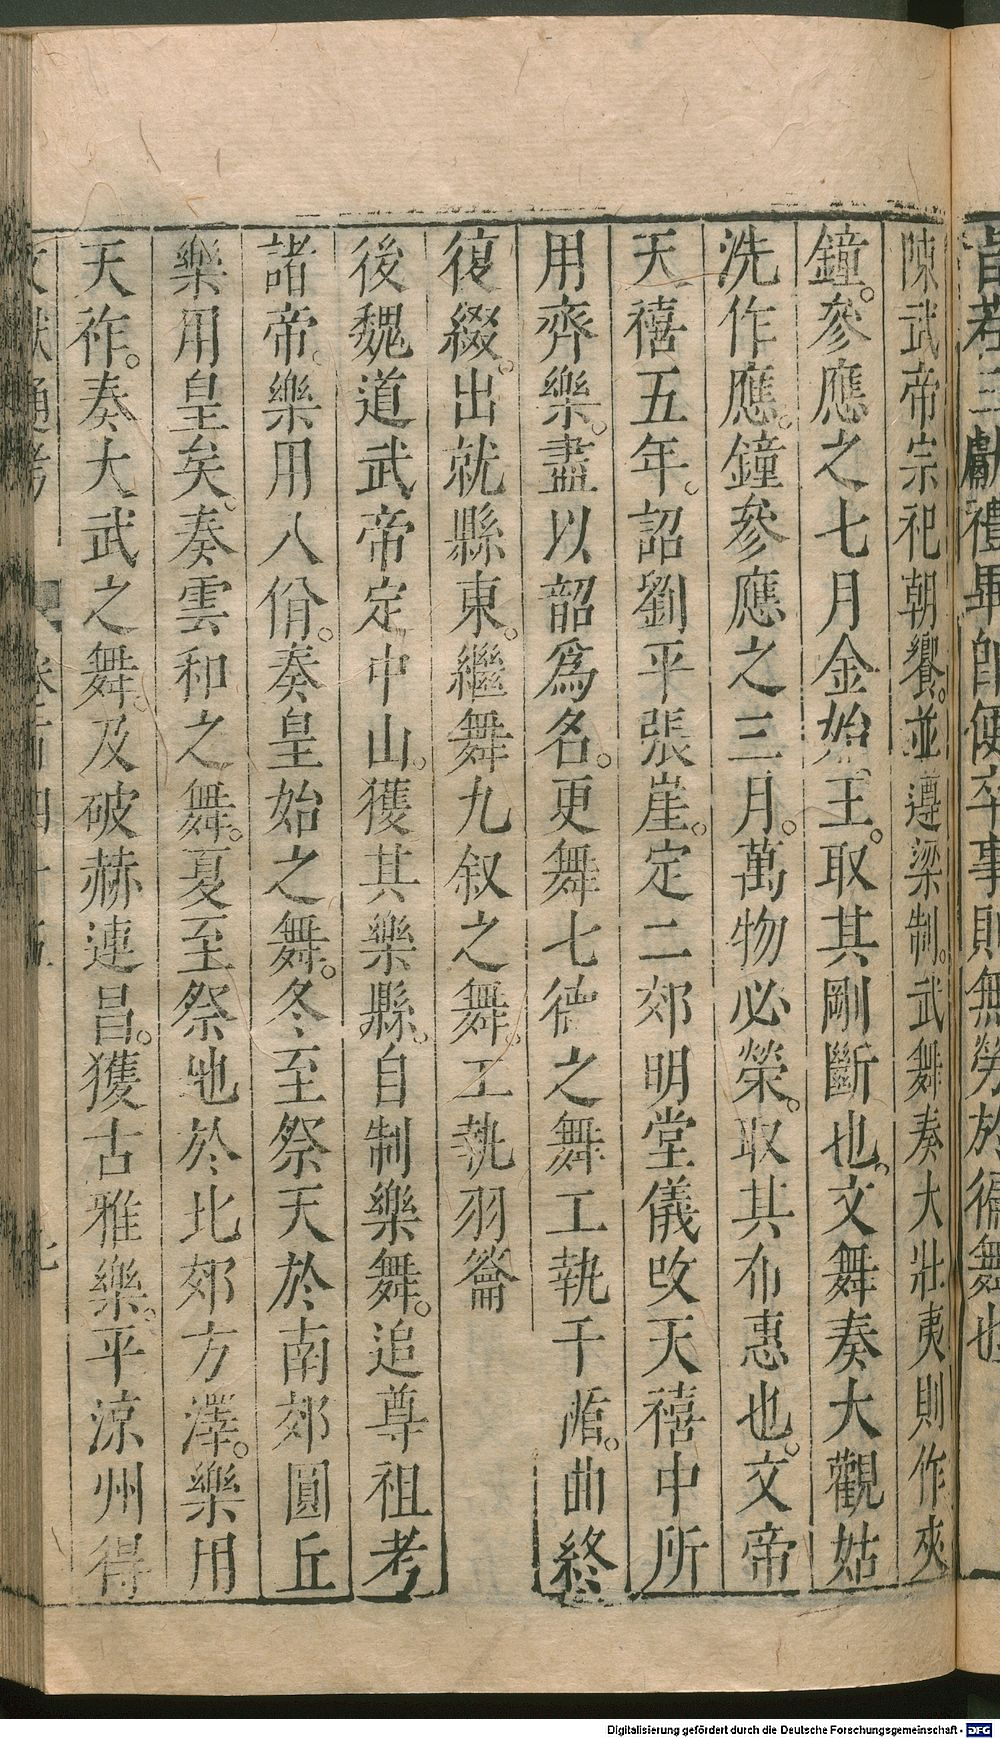 皆若三獻禮畢即便卒事則無勞於徧舞也
陳武帝宗祀朝饗。並遵梁制。武舞奏大壯夷則作夾
鐘。參應之七月金始王。取其剛斷也。文舞奏大觀姑
洗作應。鐘參應之三月。萬物必榮。取其布惠也。文帝
天禧五年。詔劉平張崖。定二郊明堂儀改天禧中所
用齊樂。盡以韶爲名。更舞七德之舞工執干楯。曲終
復綴。出就縣東。繼舞九叙之舞。工執羽籥
後魏道武帝定中山。獲其樂縣。自制樂舞。追尊祖考
諸帝。樂用八佾。奏皇始之舞。冬至祭天於南郊圓丘
樂用皇矣。奏雲和之舞。夏至祭地於北郊方澤。樂用
天祚。奏大武之舞。及破赫連昌。獲古雅樂。平涼州得
文獻通考 卷百四十五 七
Digitalisierung gefördert durch die Deutsche Forschungsgemeinschaft - DFG